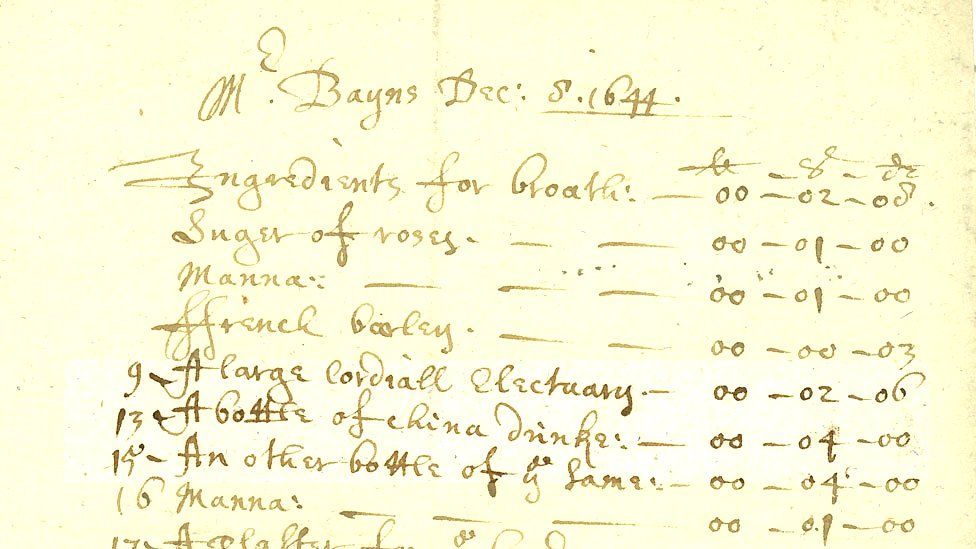 Mr. Bayns Dec: 8. 1644.
li - s - d
Ingredients for broath: — 00 - 02 - 08.
Suger of roses. — — 00 - 01 - 00
Manna: — — — 00 - 01 - 00
ffrench barley. — — 00 - 00 - 03
9 - A large Cordiall Electuary. — 00 - 02 - 06
13 - A bottle of China drinke: — 00 - 04 - 00
15 - An other bottle of ye same: - 00 - 04 - 00
16 Manna: — — — 00 - 01 - 00
17 - A plaster for ye